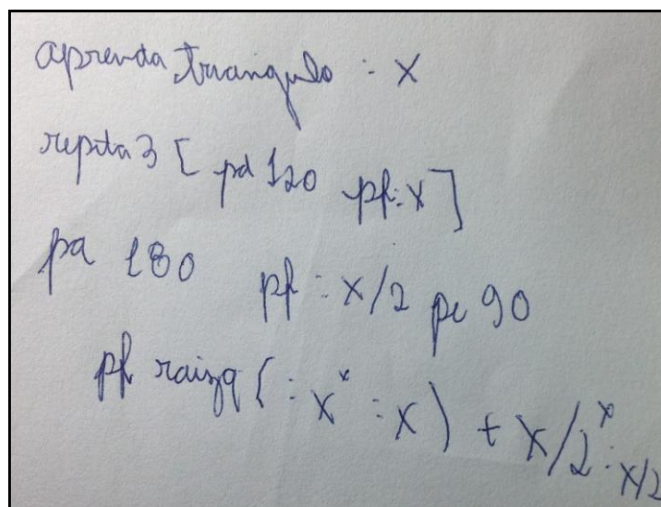 aprenda triangulo : x
repita 3 [ pd 120 pf :x ]
pa 180 pf : x/2 pe 90
pf raizq ( : x * : x ) + x/2 * : x/2